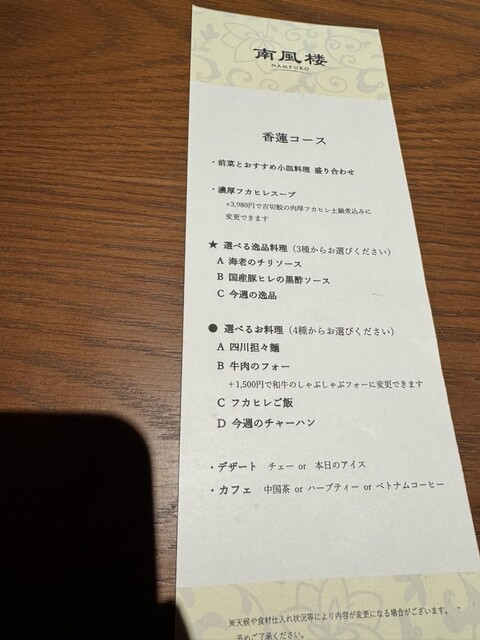 南風楼
NAMPURO
香蓮コース
・前菜とおすすめ小皿料理 盛り合わせ
・濃厚フカヒレスープ
+3,980円で吉切鮫の肉厚フカヒレ土鍋煮込みに
変更できます
★ 選べる逸品料理（3種からお選びください）
A 海老のチリソース
B 国産豚ヒレの黒酢ソース
C 今週の逸品
● 選べるお料理（4種からお選びください）
A 四川担々麺
B 牛肉のフォー
+1,500円で和牛のしゃぶしゃぶフォーに変更できます
C フカヒレご飯
D 今週のチャーハン
・デザート チェー or 本日のアイス
・カフェ 中国茶 or ハーブティー or ベトナムコーヒー
※天候や食材仕入れ状況等により内容が変更になる場合がございます。
予めご了承ください。